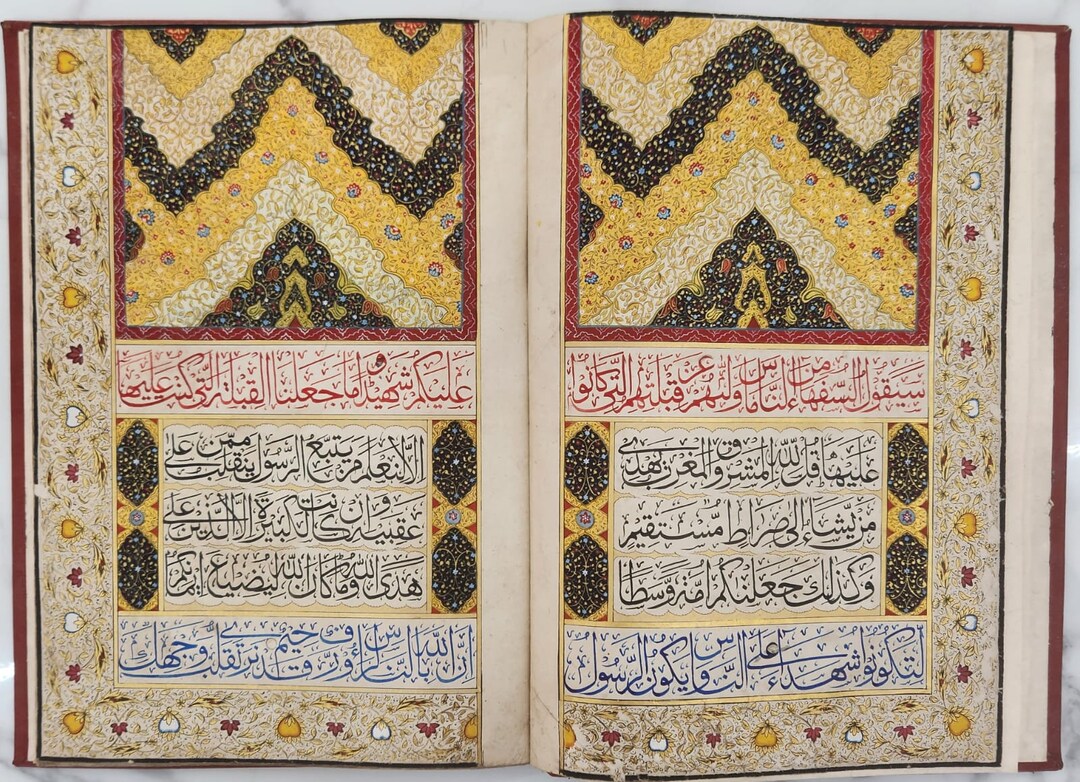 سَيَقُولُ السُّفَهَاءُ مِنَ النَّاسِ مَا وَلّٰىهُمْ عَنْ قِبْلَتِهِمُ الَّتِي كَانُوا
عَلَيْهَا قُلْ لِلّٰهِ الْمَشْرِقُ وَالْمَغْرِبُ يَهْدِي
مَنْ يَّشَاءُ إِلَى صِرَاطٍ مُّسْتَقِيمٍ
وَكَذٰلِكَ جَعَلْنٰكُمْ أُمَّةً وَّسَطًا
لِّتَكُونُوا شُهَدَاءَ عَلَى النَّاسِ وَيَكُونَ الرَّسُولُ
عَلَيْكُمْ شَهِيْدًا وَمَا جَعَلْنَا الْقِبْلَةَ الَّتِي كُنْتَ عَلَيْهَا
إِلَّا لِنَعْلَمَ مَنْ يَتَّبِعُ الرَّسُولَ مِمَّنْ يَنْقَلِبُ عَلَى
عَقِبَيْهِ وَإِنْ كَانَتْ لَكَبِيرَةً إِلَّا عَلَى الَّذِينَ
هَدَى اللّٰهُ وَمَا كَانَ اللّٰهُ لِيُضِيعَ إِيمَانَكُمْ
إِنَّ اللّٰهَ بِالنَّاسِ لَرَؤُفٌ رَّحِيمٌ قَدْ نَرٰى تَقَلُّبَ وَجْهِكَ